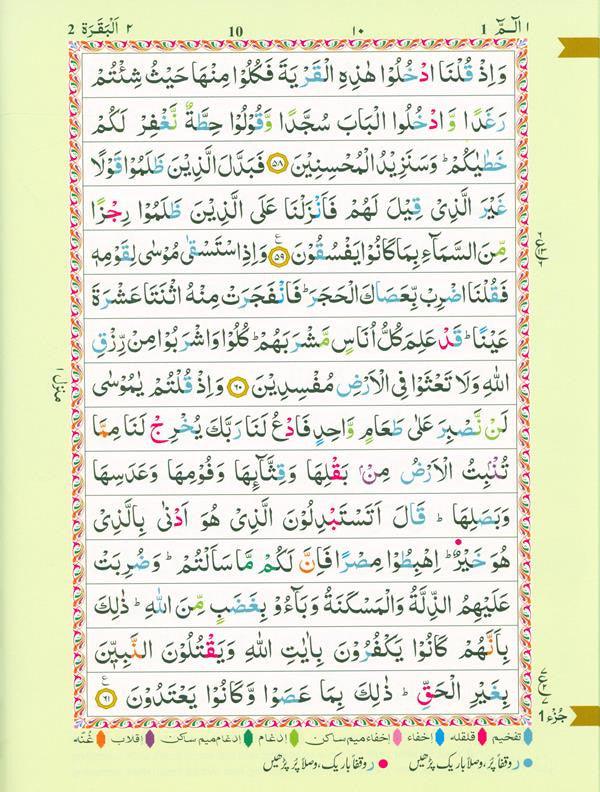 الٓـمّٓ ١ 1 ١٠ 10 ٢ اَلْبَقَرَة 2
وَاِذْ قُلْنَا ادْخُلُوْا هٰذِهِ الْقَرْيَةَ فَكُلُوْا مِنْهَا حَيْثُ شِئْتُمْ
رَغَدًا وَّادْخُلُوا الْبَابَ سُجَّدًا وَّقُوْلُوْا حِطَّةٌ نَّغْفِرْ لَكُمْ
خَطٰيٰكُمْ ؕ وَسَنَزِيْدُ الْمُحْسِنِيْنَ ﴿٥٨﴾ فَبَدَّلَ الَّذِيْنَ ظَلَمُوْا قَوْلًا
غَيْرَ الَّذِيْ قِيْلَ لَهُمْ فَاَنْزَلْنَا عَلَى الَّذِيْنَ ظَلَمُوْا رِجْزًا
مِّنَ السَّمَآءِ بِمَا كَانُوْا يَفْسُقُوْنَ ﴿٥٩﴾ ع وَاِذِ اسْتَسْقٰى مُوْسٰى لِقَوْمِهٖ
فَقُلْنَا اضْرِبْ بِّعَصَاكَ الْحَجَرَ ؕ فَانْفَجَرَتْ مِنْهُ اثْنَتَا عَشْرَةَ
عَيْنًا ؕ قَدْ عَلِمَ كُلُّ اُنَاسٍ مَّشْرَبَهُمْ ؕ كُلُوْا وَاشْرَبُوْا مِنْ رِّزْقِ
اللّٰهِ وَلَا تَعْثَوْا فِي الْاَرْضِ مُفْسِدِيْنَ ﴿٦٠﴾ وَاِذْ قُلْتُمْ يٰمُوْسٰى
لَنْ نَّصْبِرَ عَلٰى طَعَامٍ وَّاحِدٍ فَادْعُ لَنَا رَبَّكَ يُخْرِجْ لَنَا مِمَّا
تُنْۢبِتُ الْاَرْضُ مِنْۢ بَقْلِهَا وَقِثَّآئِهَا وَفُوْمِهَا وَعَدَسِهَا
وَبَصَلِهَا ؕ قَالَ اَتَسْتَبْدِلُوْنَ الَّذِيْ هُوَ اَدْنٰى بِالَّذِيْ
هُوَ خَيْرٌ ؕ اِهْبِطُوْا مِصْرًا فَاِنَّ لَكُمْ مَّا سَاَلْتُمْ ؕ وَضُرِبَتْ
عَلَيْهِمُ الذِّلَّةُ وَالْمَسْكَنَةُ وَبَآءُوْ بِغَضَبٍ مِّنَ اللّٰهِ ؕ ذٰلِكَ
بِاَنَّهُمْ كَانُوْا يَكْفُرُوْنَ بِاٰيٰتِ اللّٰهِ وَيَقْتُلُوْنَ النَّبِيّٖنَ
بِغَيْرِ الْحَقِّ ؕ ذٰلِكَ بِمَا عَصَوْا وَّكَانُوْا يَعْتَدُوْنَ ﴿٦١﴾ ع
منزل ١
جُزْء 1
تفخیم قلقلہ اخفاء اخفاء میم ساکن ادغام ادغام میم ساکن اقلاب غُنّہ
ر وقفاً پُر، وصلاً باریک پڑھیں ر وقفاً باریک، وصلاً پُر پڑھیں